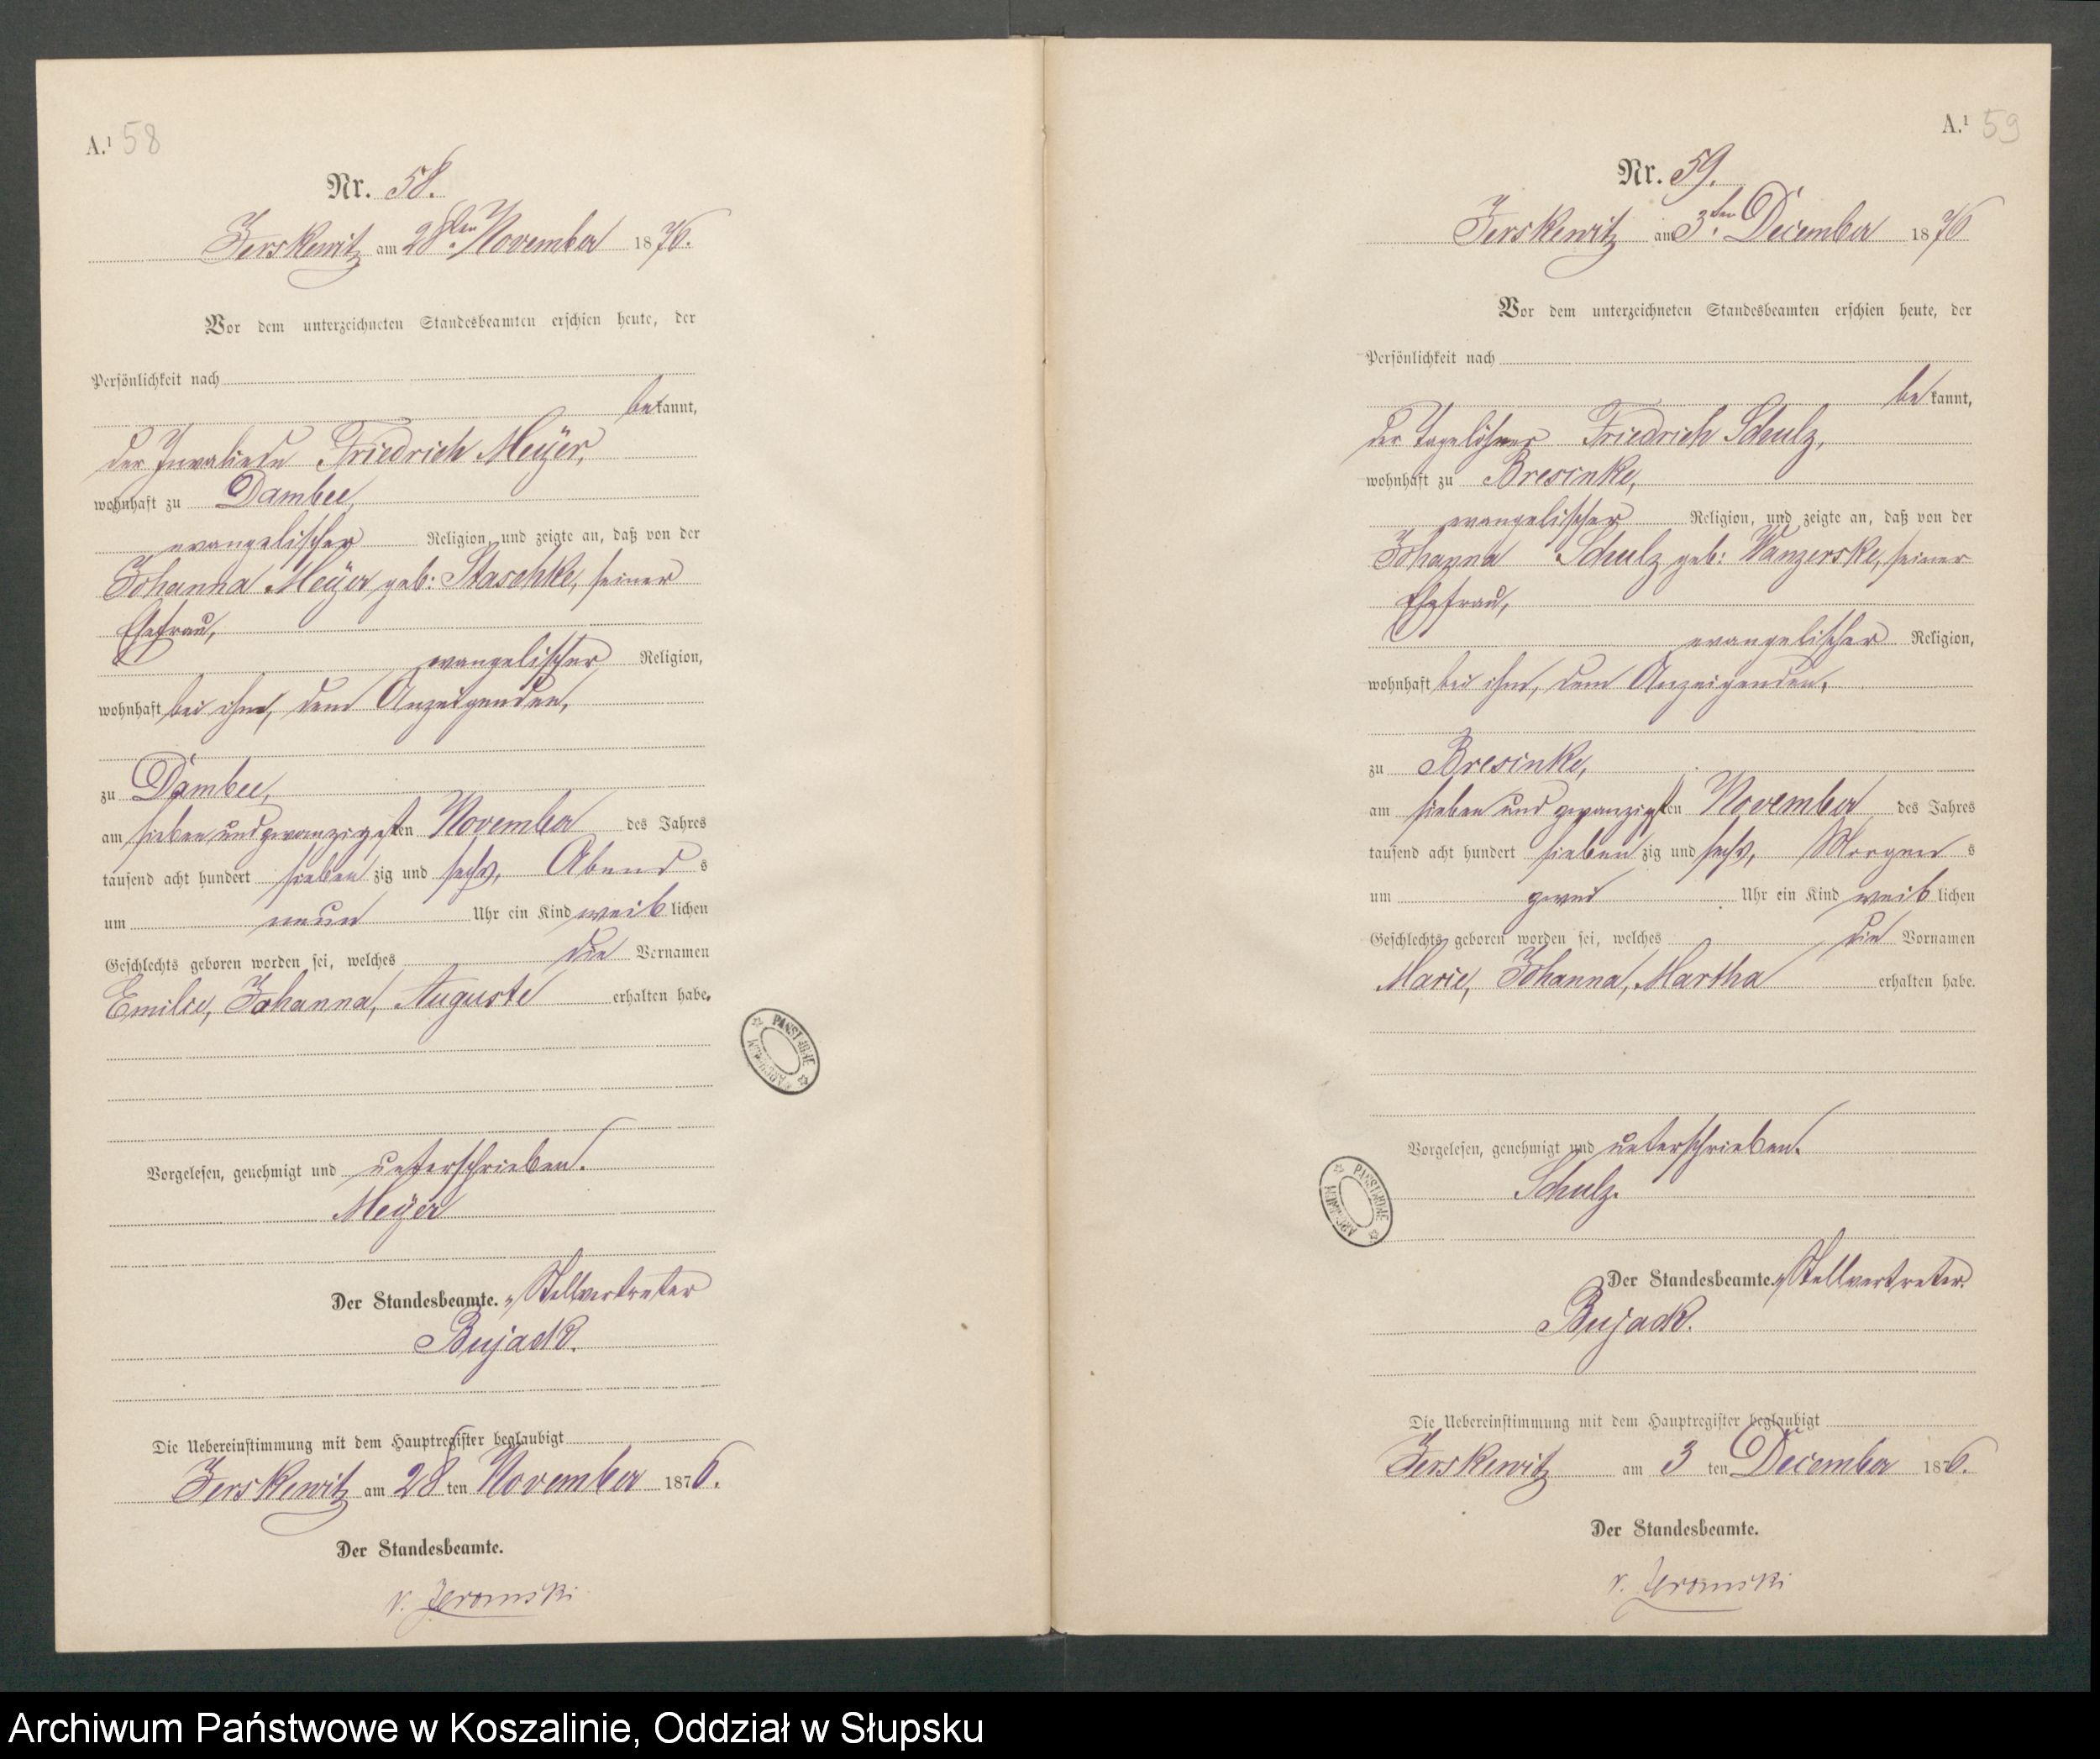 A.¹ 58
Nr. 58.
Zerskewitz am 28ten November 1876.
Vor dem unterzeichneten Standesbeamten erschien heute, der
Persönlichkeit nach
bekannt,
der Invaliede Friedrich Meÿer,
wohnhaft zu Dambee,
evangelischer Religion, und zeigte an, daß von der
Johanna Meÿer geb: Staschke, seiner
Ehefrau,
evangelischer Religion,
wohnhaft bei ihm, dem Anzeigenden,
zu Dambee,
am sieben und zwanzigsten November des Jahres
tausend acht hundert siebenzig und sechs, Abends
um neun Uhr ein Kind weiblichen
Geschlechts geboren worden sei, welches die Vornamen
Emilie, Johanna, Auguste erhalten habe.
Vorgelesen, genehmigt und unterschrieben.
Meÿer
Der Standesbeamte. Stellvertreter
Bujack.
Die Uebereinstimmung mit dem Hauptregister beglaubigt
Zerskewitz am 28ten November 1876.
Der Standesbeamte.
v. Zeromski
A.¹ 59
Nr. 59.
Zerskewitz am 3ten December 1876
Vor dem unterzeichneten Standesbeamten erschien heute, der
Persönlichkeit nach
bekannt,
der Tagelöhner Friedrich Schulz,
wohnhaft zu Bresinke,
evangelischer Religion, und zeigte an, daß von der
Johanna Schulz geb: Wanzerske, seiner
Ehefrau,
evangelischer Religion,
wohnhaft bei ihm, dem Anzeigenden,
zu Bresinke,
am sieben und zwanzigsten November des Jahres
tausend acht hundert siebenzig und sechs, Morgens
um zwei Uhr ein Kind weiblichen
Geschlechts geboren worden sei, welches die Vornamen
Marie, Johanna, Martha erhalten habe.
Vorgelesen, genehmigt und unterschrieben.
Schulz.
Der Standesbeamte. Stellvertreter.
Bujack.
Die Uebereinstimmung mit dem Hauptregister beglaubigt
Zerskewitz am 3ten December 1876.
Der Standesbeamte.
v. Zeromski
Archiwum Państwowe w Koszalinie, Oddział w Słupsku